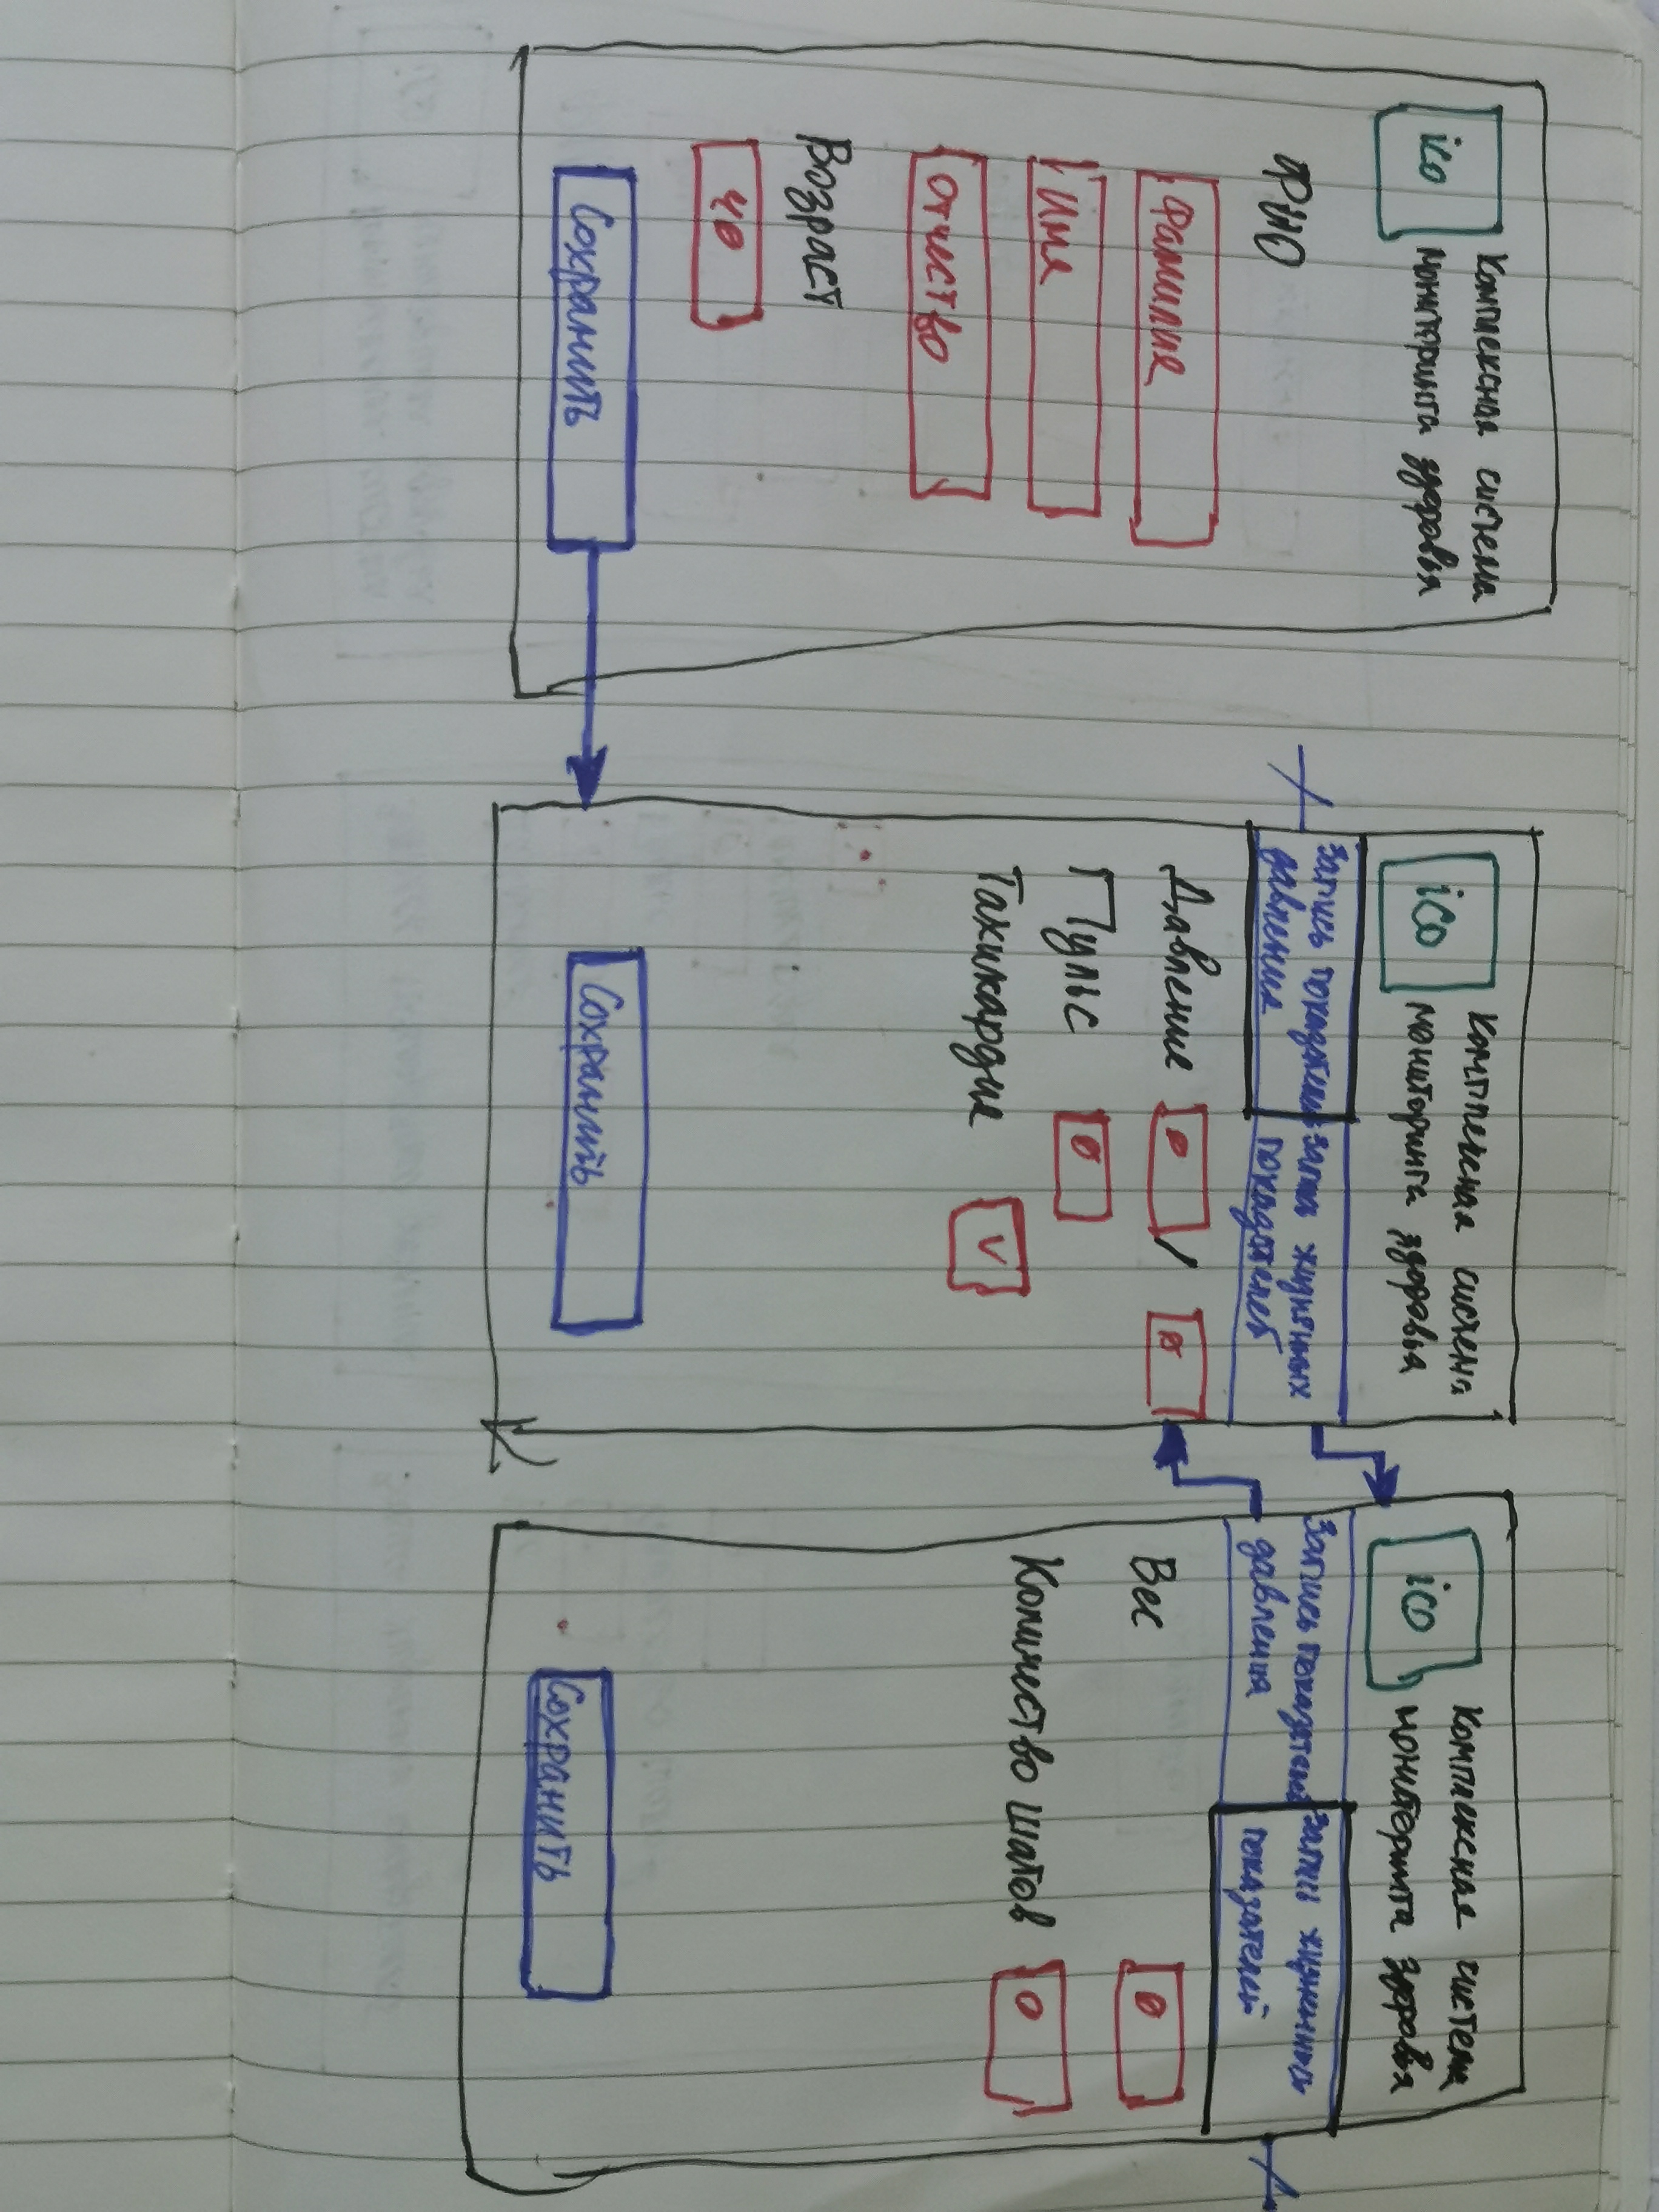 ico
Комплексная система
мониторинга здоровья
ФИО
Фамилия
Имя
Отчество
Возраст
40
Сохранить
ico
Комплексная система
мониторинга здоровья
Запись показателей
давления
запись жизненных
показателей
Давление 0 / 0
Пульс 0
Тахикардия V
Сохранить
ico
Комплексная система
мониторинга здоровья
Запись показателей
давления
записи жизненных
показателей
Вес 0
Количество шагов 0
Сохранить